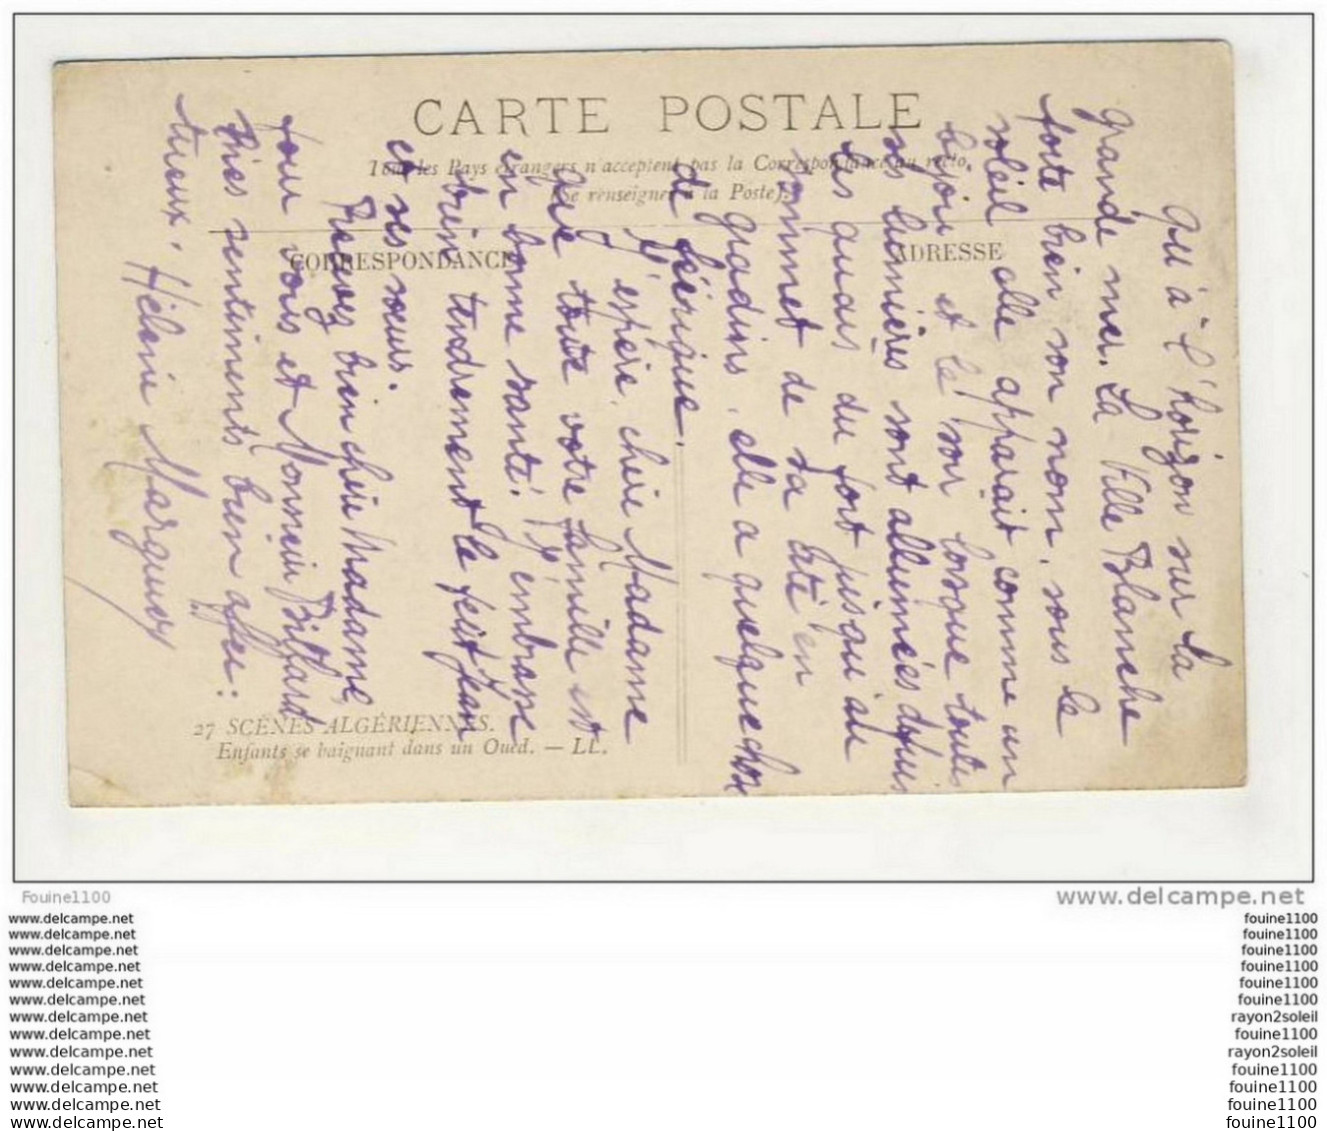 CARTE POSTALE
Tous les Pays étrangers n'acceptent pas la Correspondance au recto.
(Se renseigner à la Poste).
CORRESPONDANCE
ADRESSE
qu'à l'horizon sur la
grande mer. La Ville Blanche
porte bien son nom, sous le
soleil elle apparait comme un
bijou et le soir lorsque toutes
ses lumières sont allumées depuis
les quais du port jusqu'au
sommet de sa cité en
gradins, elle a quelque chose
de féérique.
J'espère, chère Madame
que toute votre famille est
en bonne santé. J'embrasse
bien tendrement le petit Jean
et ses sœurs.
Recevez bien chère Madame,
pour vous et Monsieur
mes sentiments bien affec:
tueux. Hélène Marguey
27 SCÈNES ALGÉRIENNES.
Enfants se baignant dans un Oued. — LL.
Fouine1100
www.delcampe.net
www.delcampe.net
fouine1100
www.delcampe.net
fouine1100
www.delcampe.net
fouine1100
www.delcampe.net
fouine1100
www.delcampe.net
fouine1100
www.delcampe.net
fouine1100
www.delcampe.net
rayon2soleil
www.delcampe.net
fouine1100
www.delcampe.net
rayon2soleil
www.delcampe.net
fouine1100
www.delcampe.net
fouine1100
www.delcampe.net
fouine1100
www.delcampe.net
fouine1100